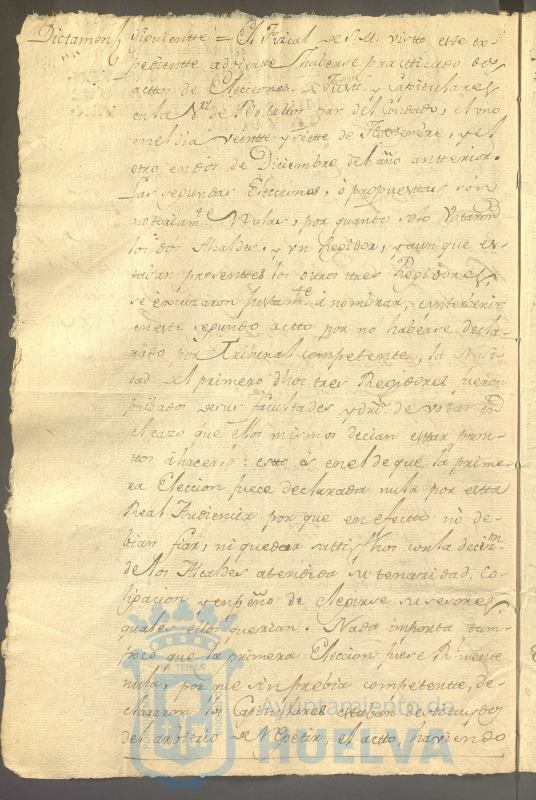 Dictamen Siguiente = El Fiscal de S.M. visto este ex-
pediente advierte haberse practticado dos
acttos de Elecciones, de Justt.ª y Capittulares
en la V.ª de Bollullos par del Condado, el uno
en el dia veintte y siette de Noviembre, y el
otro en dos de Diciembre del año antterior.
Las segundas Elecciones, ò propuesttas son
nottoriam.te Nulas, por quanto solo Votaron
los dos Alcaldes, y un Regidor, y aun que es-
taban presenttes los otros ttres Regidores,
se excuzaron justtam.te à nombrar, è intterbenir
en estte segundo actto por no haberse decla-
rado por Tribunal competente, la Nuli-
dad del primero dhos tres Regidores fueron
pribados de sus facultades y dro. de votar en
el cazo que ellos mismos decian esttar pron-
ttos à hacerlo: estto es en el de que la prime-
ra Eleccion fuece declarada nula por estta
Real Audiencia por que en efectto no de-
bian fiar, ni quedar sattisfhos con la decis.n
de los Alcaldes atendida su tenacidad, Co-
lipacion y enpeño de elegirse susesores
quales ellos querian. Nada importta tam-
poco que la primera Eleccion fuese
nula, por que sin prebia competentte, de-
claracion los Capitulares estaban destituydos
del arvitrio de Repetir el actto, haviendo
Ayuntamiento de
HUELVA